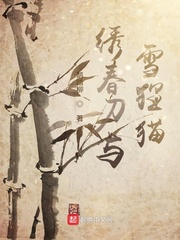 绣春刀与
雪狸猫
著